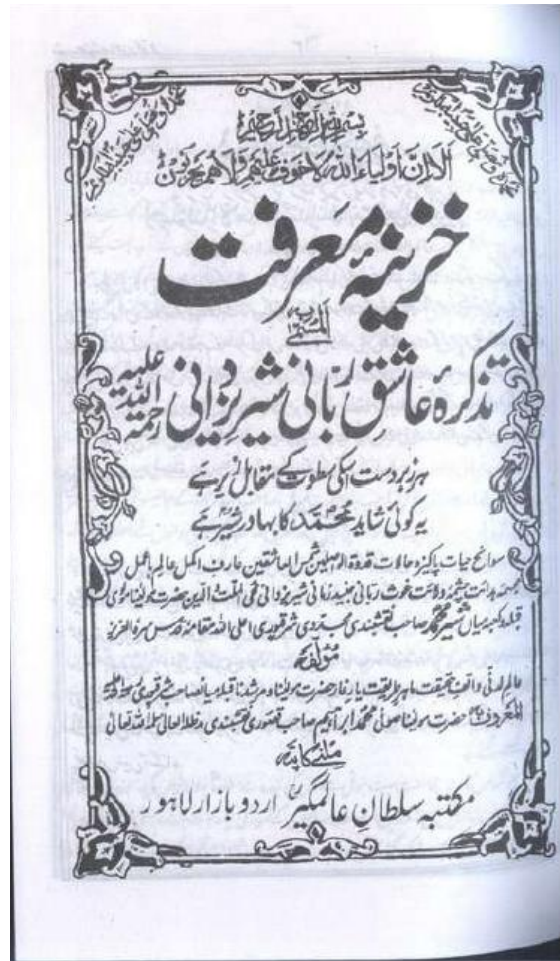 بسم اللہ الرحمن الرحیم
الا ان اولیاء اللہ لا خوف علیھم ولا ھم یحزنون
خزینۂ معرفت
المسمّٰی بہ
تذکرۂ عاشقِ ربّانی شیرِ یزدانی رحمۃ اللہ علیہ
ہر زبردست اسکی سطوت کے مقابل زیر ہے
یہ کوئی شاید محمّد کا بہادر شیر ہے
سوانح حیات پاکیزہ حالات قدوۃ الواصلین شمس العاشقین عارف اکمل عالم باعمل
چشمہ ولایت غوث ربانی جنید زمانی شیر یزدانی محی الملت والدین حضرت مولینا مولوی
قبلہ و کعبہ میاں شیر محمد صاحب نقشبندی مجددی شرقپوری اعلی اللہ مقامہ قدس سرہ العزیز
مؤلفہ
عالم لدنی واقف حقیقت ماہر طریقت یار غار حضرت مولینا و مرشدنا قبلہ میانصاحب شرقپوری
المعروف حضرت مولینا صوفی محمد ابراہیم صاحب قصوری نقشبندی مدظلہ العالی سلمہ اللہ تعالٰی
ملنے کا پتہ
مکتبہ سلطانِ عالمگیر اردو بازار لاہور